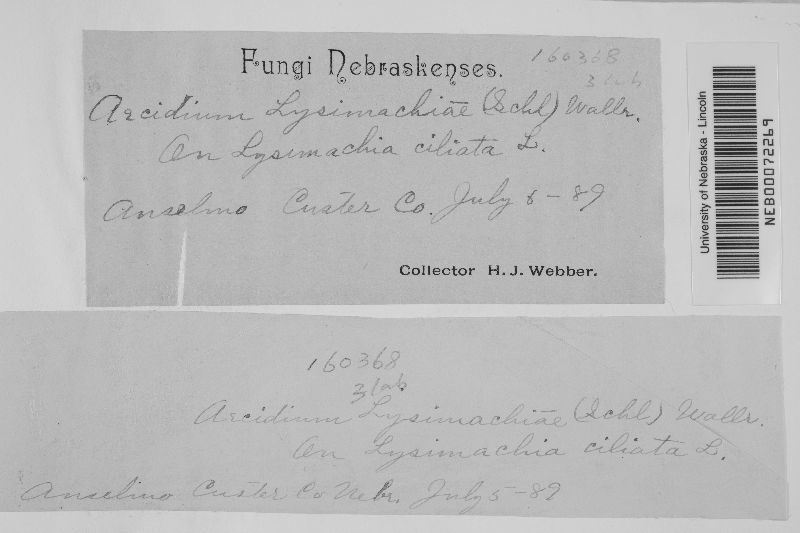 Fungi Nebraskenses.
160368
3 lab
Aecidium Lysimachiae (Schl) Wallr.
On Lysimachia ciliata L.
Anselmo Custer Co. July 5-89
Collector H. J. Webber.
University of Nebraska - Lincoln
NEB00072269
160368
3 lab
Aecidium Lysimachiae (Schl) Wallr.
On Lysimachia ciliata L.
Anselmo Custer Co Nebr. July 5-89